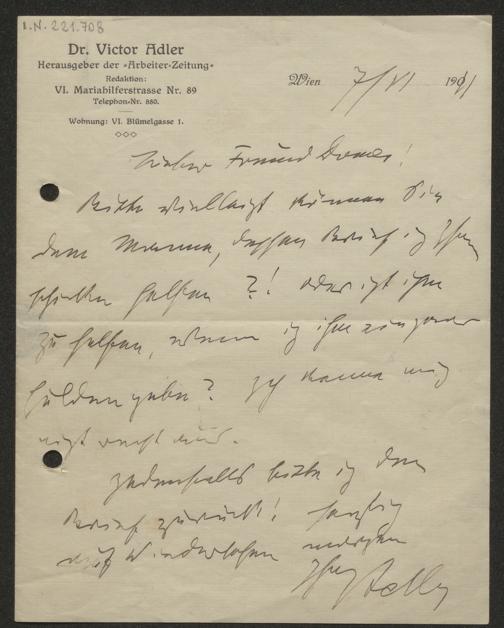 I.N. 221.708
Dr. Victor Adler
Herausgeber der »Arbeiter-Zeitung«
Redaktion:
VI. Mariahilferstrasse Nr. 89
Telephon-Nr. 880.
Wohnung: VI. Blümelgasse 1.
Wien 7/VI 1901
Lieber Freund Domes!
Bitte vielleicht können Sie
dem Manne, dessen Brief ich Ihnen
schicke helfen?! oder ist ihm
zu helfen, wenn ich ihm ein paar
Gulden gebe? Ich kenne mich
nicht recht aus.
Jedenfalls bitte ich den
Brief zurück! Herzlich
auf Wiedersehen morgen
Ihr Adler